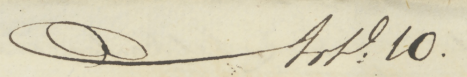 Art.d 10.